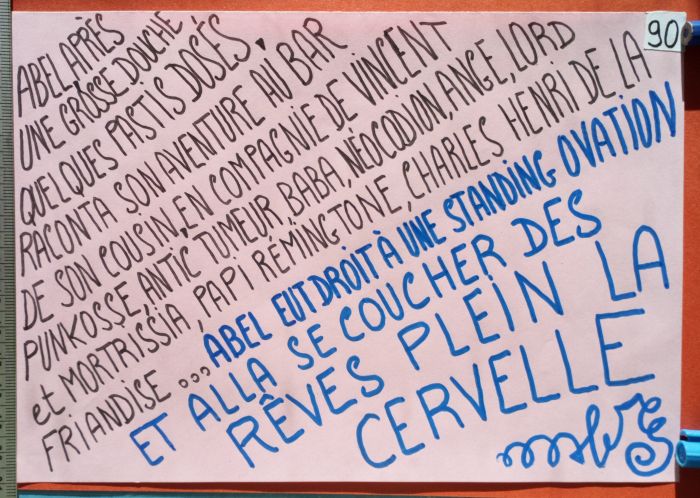 90
ABEL, APRÈS
UNE GROSSE DOUCHE
QUELQUES PASTIS DOSÉS.
RACONTA SON AVENTURE AU BAR
DE SON COUSIN, EN COMPAGNIE DE VINCENT
PUNKOSSE, ANTIC, TUMEUR, BABA, NÉOCODION, ANGE, LORD
et MORTRISSIA, PAPI RÉMINGTONE, CHARLES HENRI DE LA
FRIANDISE ... ABEL EUT DROIT À UNE STANDING OVATION
ET ALLA SE COUCHER DES
RÊVES PLEIN LA
CERVELLE